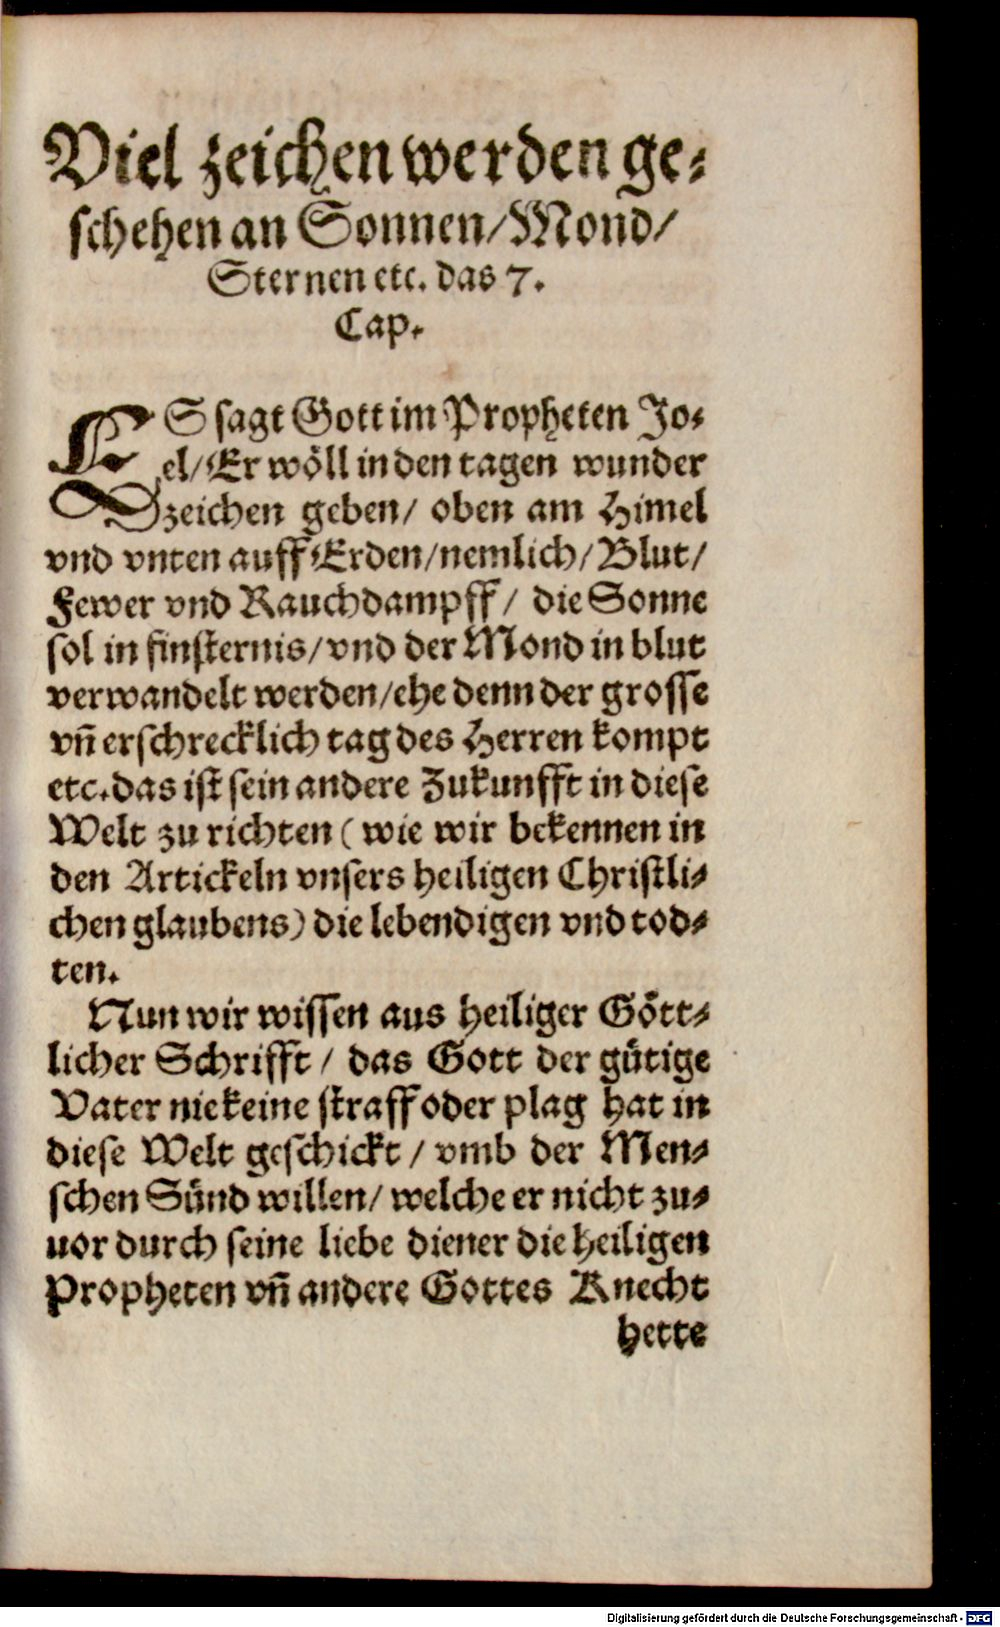 Viel zeichen werden ge⸗
schehen an Sonnen/Mond/
Sternen etc. das 7.
Cap.
ES sagt Gott im Propheten Jo⸗
el/Er wöll in den tagen wunder
zeichen geben/ oben am Himel
vnd vnten auff Erden/nemlich/Blut/
Fewer vnd Rauchdampff/ die Sonne
sol in finsternis/vnd der Mond in blut
verwandelt werden/ehe denn der grosse
vñ erschrecklich tag des Herren kompt
etc. das ist sein andere Zukunfft in diese
Welt zu richten (wie wir bekennen in
den Artickeln vnsers heiligen Christli⸗
chen glaubens) die lebendigen vnd tod⸗
ten.
Nun wir wissen aus heiliger Gött⸗
licher Schrifft/ das Gott der gütige
Vater nie keine straff oder plag hat in
diese Welt geschickt/ vmb der Men⸗
schen Sünd willen/ welche er nicht zu⸗
uor durch seine liebe diener die heiligen
Propheten vñ andere Gottes Knecht
hette
Digitalisierung gefördert durch die Deutsche Forschungsgemeinschaft - DFG